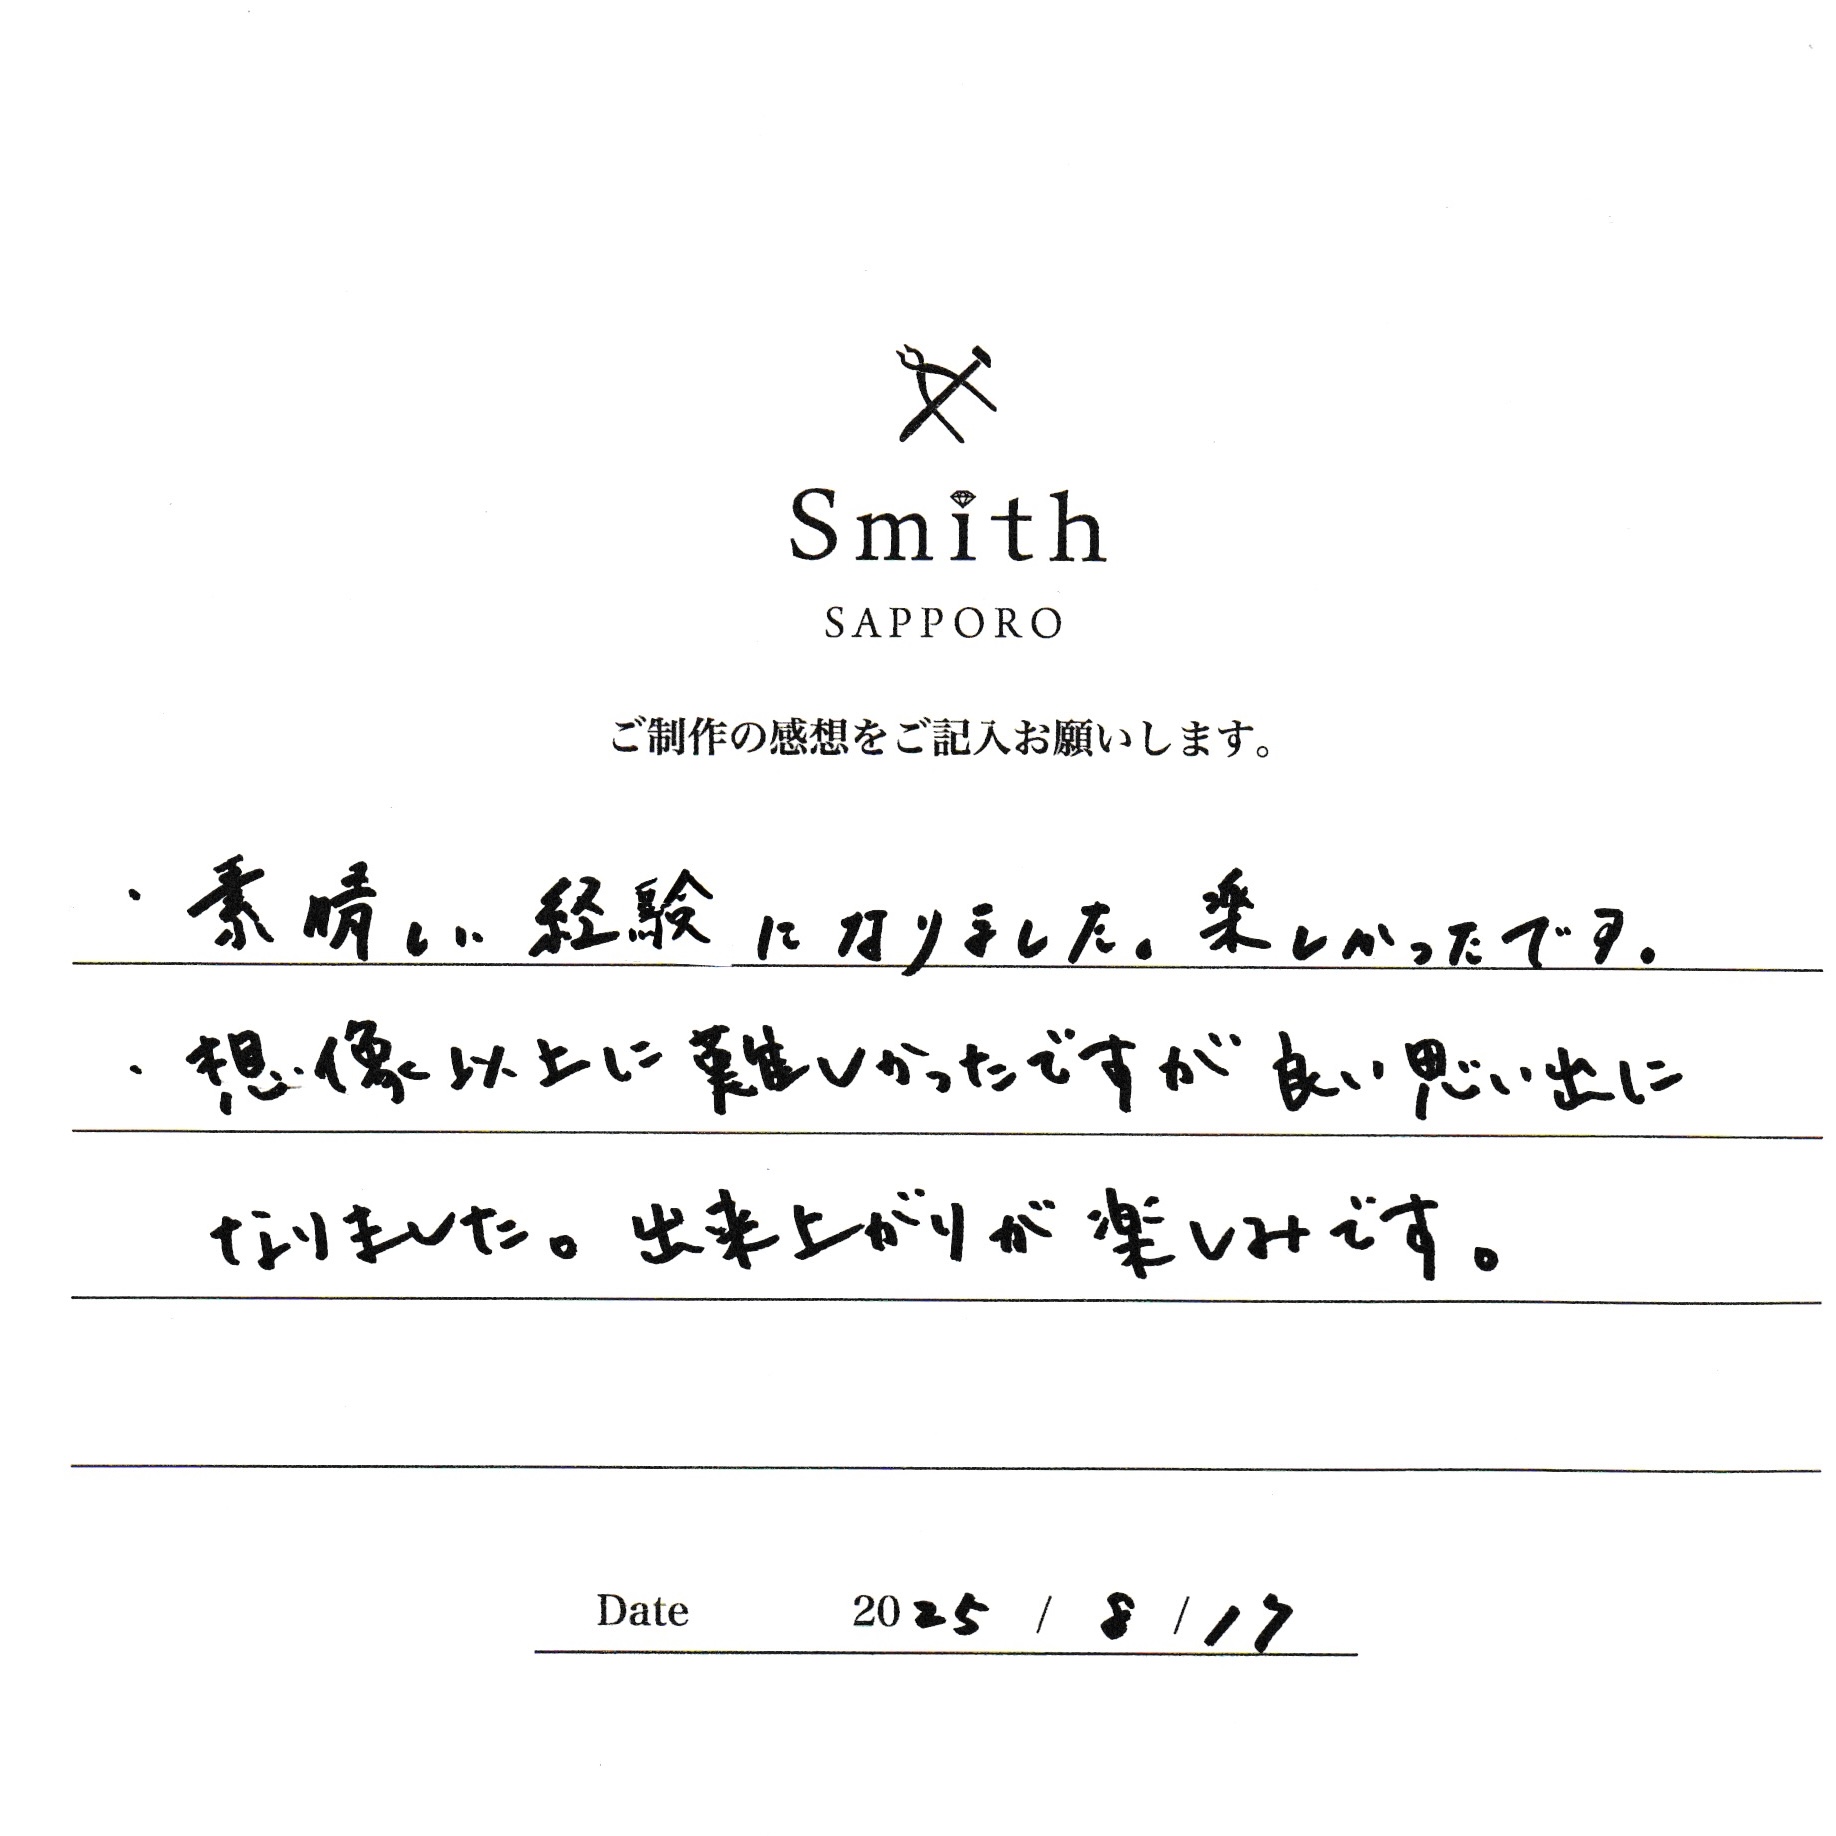 Smith
SAPPORO
ご制作の感想をご記入お願いします。
・素晴しい経験になりました。楽しかったです。
・想像以上に難しかったですが良い思い出に
なりました。出来上がりが楽しみです。
Date 2025 / 8 / 17